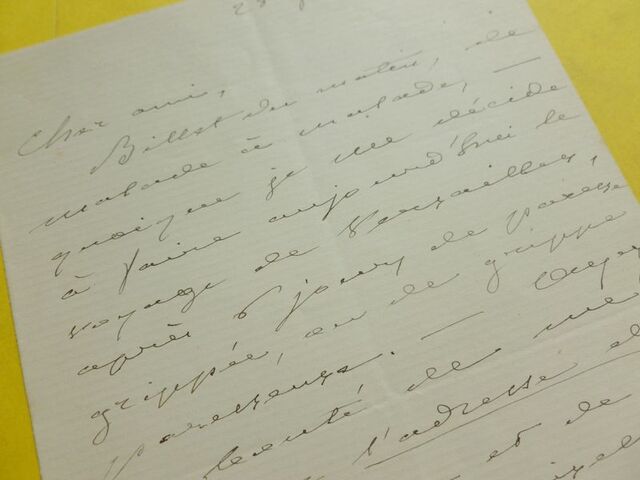 Cher ami,
Billet du matin, de
malade à malade, —
quoique je me décide
à faire aujourd'hui le
voyage de Versailles,
après 6 jours de paresse
grippée, ou de grippe
paresseuse. —
de me
l'adresse
et de